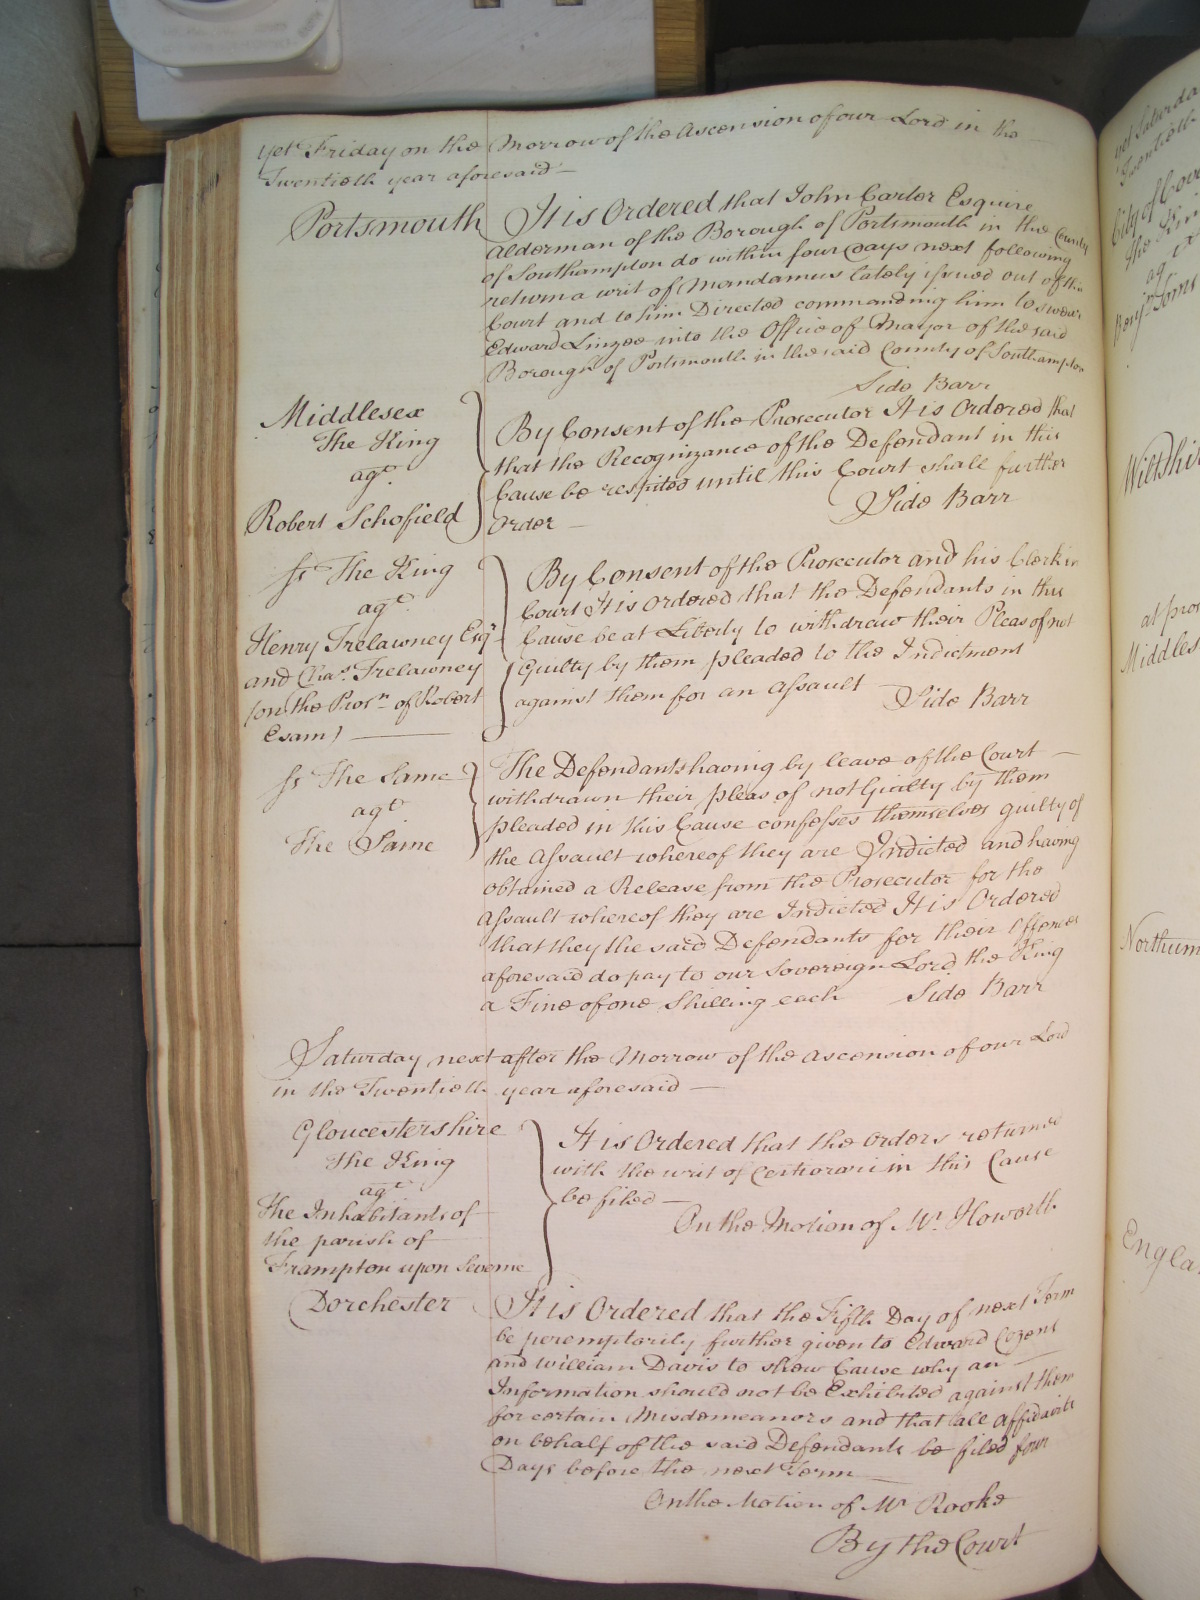 Yet Friday on the Morrow of the Ascension of our Lord in the
Twentieth year aforesaid—
Portsmouth
It is Ordered that John Carter Esquire
Alderman of the Borough of Portsmouth in the County
of Southampton do within four Days next following
return a writ of Mandamus lately issued out of this
Court and to him Directed commanding him to swear
Edward Linzee into the Office of Mayor of the said
Borough of Portsmouth in the said County of Southampton
Side Barr
Middlesex
The King
agt.
Robert Schofield
By Consent of the Prosecutor It is Ordered that
that the Recognizance of the Defendant in this
Cause be respited until this Court shall further
Order —
Side Barr
Ss The King
agt.
Henry Trelawney Esqr.
and Chas. Trelawney
(on the Prosn. of Robert
Esam) —
By Consent of the Prosecutor and his Clerk in
Court It is Ordered that the Defendants in this
Cause be at Liberty to withdraw their Pleas of not
Guilty by them pleaded to the Indictment
against them for an Assault
Side Barr
Ss The Same
agt.
The Same
The Defendants having by leave of the Court —
withdrawn their pleas of not Guilty by them
pleaded in this Cause confesses themselves guilty of
the Assault whereof they are Indicted and having
obtained a Release from the Prosecutor for the
Assault whereof they are Indicted It is Ordered
that they the said Defendants for their Offences
aforesaid do pay to our Sovereign Lord the King
a Fine of one Shilling each
Side Barr
Saturday next after the Morrow of the Ascension of our Lord
in the Twentieth year aforesaid —
Gloucestershire
The King
agt.
The Inhabitants of
the parish of
Frampton upon Severne
It is Ordered that the Orders returned
with the writ of Certiorari in this Cause
be filed —
On the Motion of Mr. Howorth
Dorchester
It is Ordered that the Fifth Day of next Term
be peremptorily further given to Edward Cozens
and William Davis to shew Cause why an —
Information should not be Exhibited against them
for certain Misdemeanors and that all Affidavits
on behalf of the said Defendants be filed four
Days before the next Term —
On the Motion of Mr. Rooke
By the Court
City of Cov
the Ki
agt.
Wiltshi
Middles
Northum
Engla